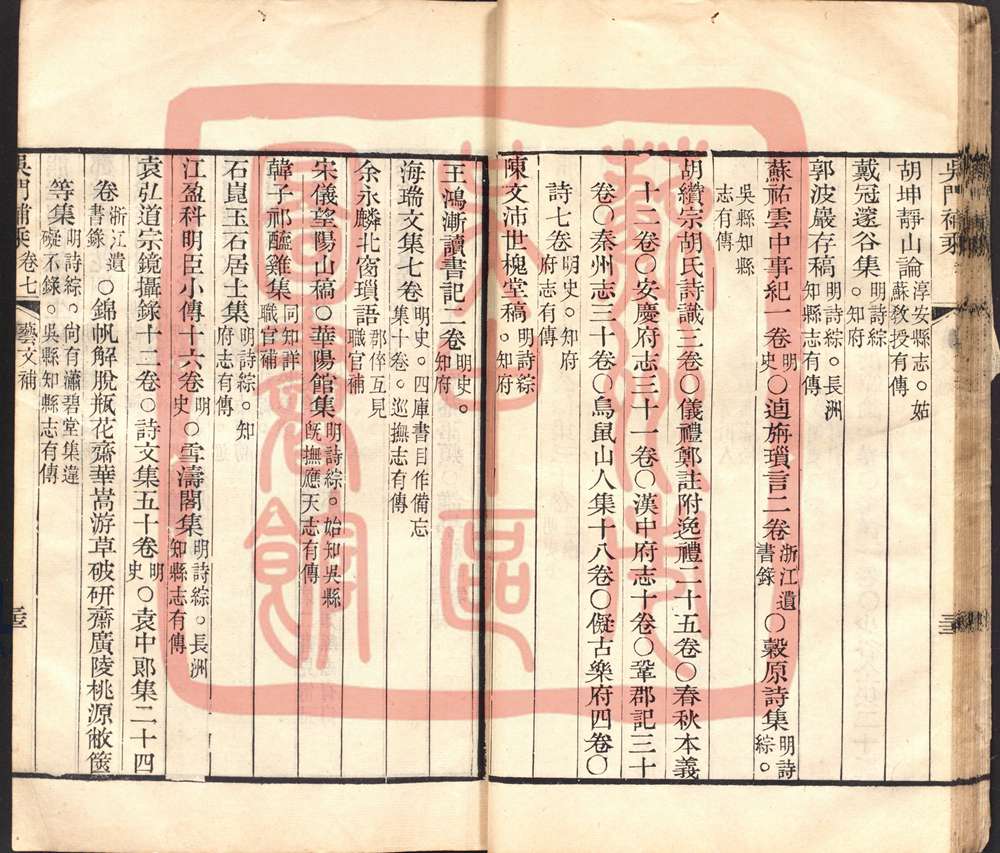 胡坤靜山論淳安縣志。姑蘇敎授有傳
戴冠邃谷集明詩綜。知府
郭波巖存稿明詩綜。長洲知縣志有傳
蘇祐雲中事紀一卷明史〇逌旃瑣言二卷浙江遺書錄〇榖原詩集明詩綜。
吳縣知縣志有傳
胡纘宗胡氏詩識三卷〇儀禮鄭註附逸禮二十五卷〇春秋本義
十二卷〇安慶府志三十一卷〇漢中府志十卷〇鞏郡記三十
卷〇秦州志三十卷〇鳥鼠山人集十八卷〇儗古樂府四卷〇
詩七卷明史。知府府志有傳
陳文沛世槐堂稿明詩綜。知府
王鴻漸讀書記二卷明史。知府
海瑞文集七卷明史。四庫書目作備忘集十卷。巡撫志有傳
余永麟北窗瑣語郡倅互見職官補
宋儀望陽山稿〇華陽館集明詩綜。始知吳縣旣撫應天志有傳
韓子祁醯雞集同知詳職官補
石崑玉石居士集明詩綜。知府志有傳
江盈科明臣小傳十六卷明史〇雪濤閣集明詩綜。長洲知縣志有傳
袁弘道宗鏡攝錄十二卷〇詩文集五十卷明史〇袁中郎集二十四
卷浙江遺書錄〇錦帆解脫瓶花齋華嵩游草破研齋廣陵桃源敝篋
等集明詩綜。尙有瀟碧堂集違礙不錄。吳縣知縣志有傳
吳門補乘卷七 藝文補